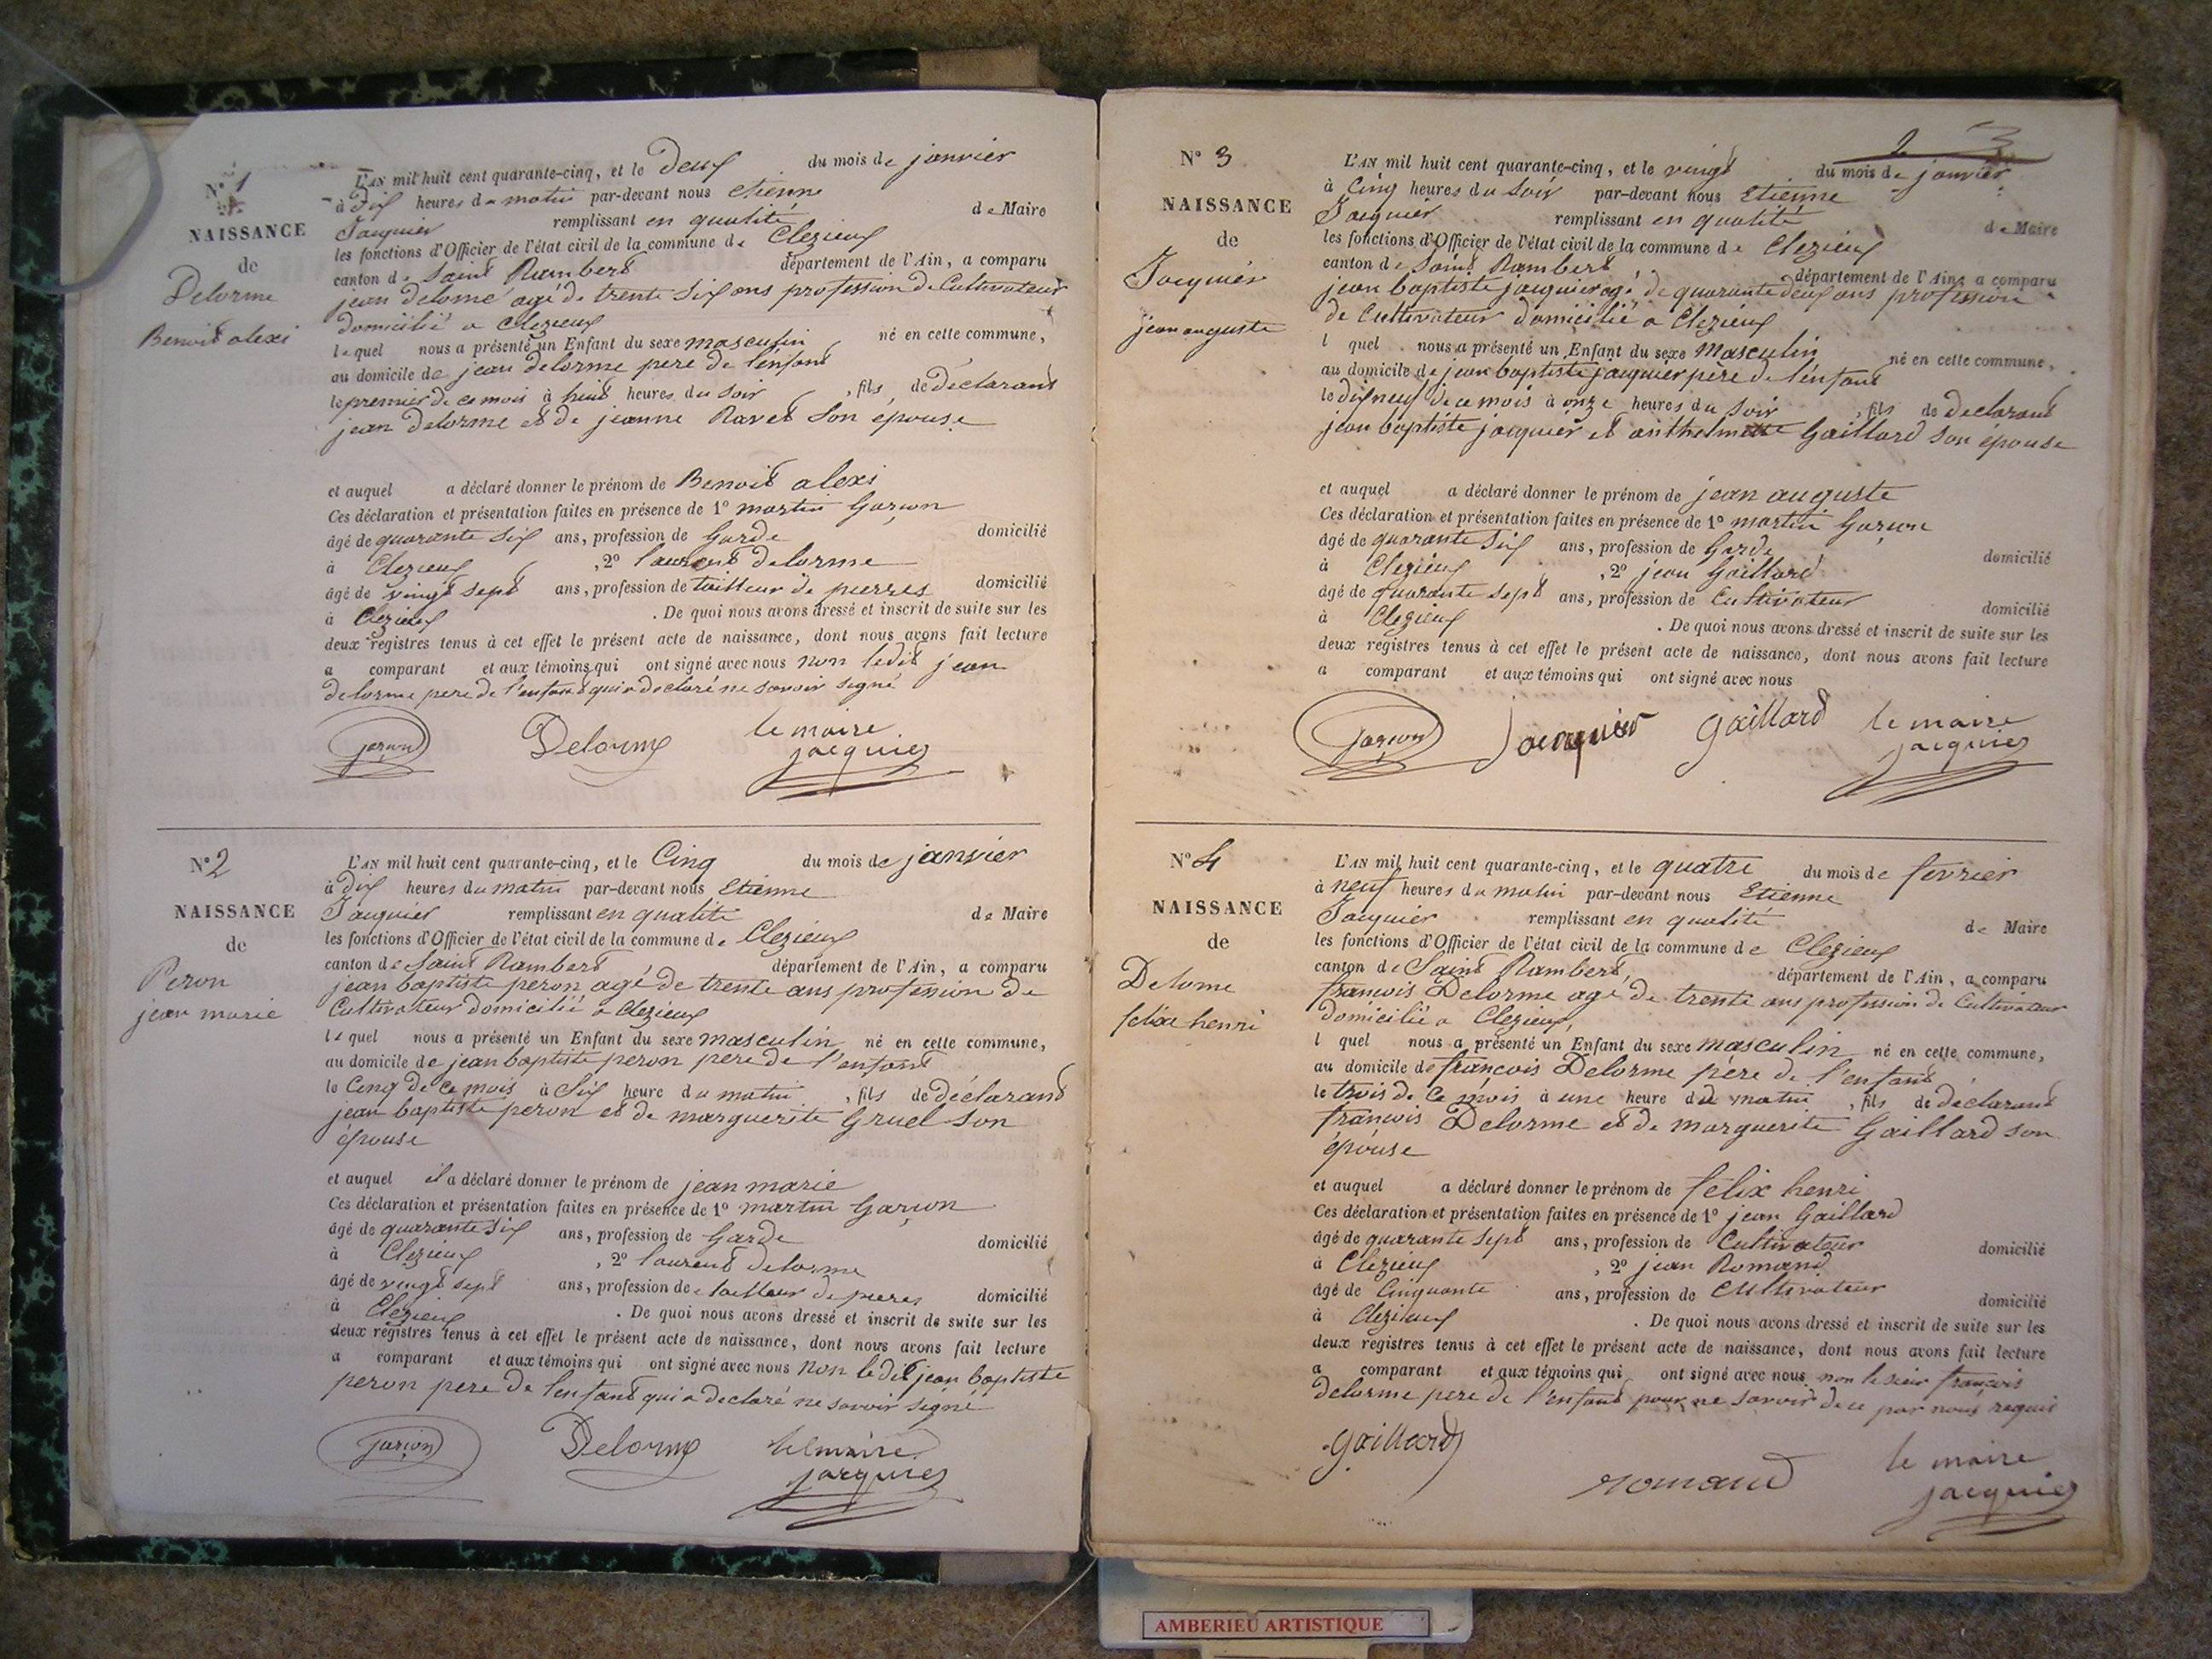 N° 1
NAISSANCE
de
Delorme
Benoit alexi
L'AN mil huit cent quarante-cinq, et le Deux du mois de janvier
à Dix heures du matin par-devant nous etienne
Jacquier remplissant en qualité de Maire
les fonctions d'Officier de l'état civil de la commune de Clezieux
canton de Saint Rambert département de l'Ain, a comparu
jean delorme agé de trente six ans profession de Cultivateur
domicilié a Clezieux
lequel nous a présenté un Enfant du sexe masculin né en cette commune,
au domicile de jean delorme pere de l'enfant
le premier de ce mois à huit heures du soir, fils de declarant
jean Delorme et de jeanne Ravet son épouse
et auquel a déclaré donner le prénom de Benoit alexi
Ces déclaration et présentation faites en présence de 1° martin Garçon
âgé de quarante six ans, profession de Garde domicilié
à Clezieux, 2° laurent delorme
âgé de vingt sept ans, profession de tailleur de pierres domicilié
à Clezieux. De quoi nous avons dressé et inscrit de suite sur les
deux registres tenus à cet effet le présent acte de naissance, dont nous avons fait lecture
a comparant et aux témoins qui ont signé avec nous non ledit jean
delorme pere de l'enfant qui a declaré ne savoir signé
garçon Delorme le maire
jacquier
N° 2
NAISSANCE
de
Peron
jean marie
L'AN mil huit cent quarante-cinq, et le Cinq du mois de janvier
à dix heures du matin par-devant nous Etienne
Jacquier remplissant en qualité de Maire
les fonctions d'Officier de l'état civil de la commune de Clezieux
canton de Saint Rambert, département de l'Ain, a comparu
jean baptiste peron agé de trente ans profession de
Cultivateur domicilié a Clezieux
lequel nous a présenté un Enfant du sexe masculin né en cette commune,
au domicile de jean baptiste peron pere de l'enfant
le Cinq de ce mois à Six heure du matin, fils de déclarant
jean baptiste peron et de marguerite Gruel son
épouse
et auquel il a déclaré donner le prénom de jean marie
Ces déclaration et présentation faites en présence de 1° martin Garçon
âgé de quarante six ans, profession de Garde domicilié
à Clezieux, 2° laurent delorme
âgé de vingt sept ans, profession de tailleur de pieres domicilié
à Clezieux. De quoi nous avons dressé et inscrit de suite sur les
deux registres tenus à cet effet le présent acte de naissance, dont nous avons fait lecture
a comparant et aux témoins qui ont signé avec nous non ledit jean baptiste
peron pere de l'enfant qui a declaré ne savoir signé
garçon Delorme le maire
jacquier
2 3
N° 3
NAISSANCE
de
Jacquier
jean auguste
L'AN mil huit cent quarante-cinq, et le vingt du mois de janvier
à Cinq heures du Soir par-devant nous Etienne
Jacquier remplissant en qualité de Maire
les fonctions d'Officier de l'état civil de la commune de Clezieux
canton de Saint Rambert, département de l'Ain, a comparu
jean baptiste jacquier agé de quarante deux ans profession
de Cultivateur domicilié a Clezieux
l quel nous a présenté un Enfant du sexe Masculin né en cette commune,
au domicile de jean baptiste jacquier père de l'enfant
le dix neuf de ce mois à onze heures du Soir, fils de declarant
jean baptiste jacquier et anthelmette Gaillard son épouse
et auquel a déclaré donner le prénom de jean auguste
Ces déclaration et présentation faites en présence de 1° martin Garçon
âgé de quarante Six ans, profession de Garde domicilié
à Clezieux, 2° jean Gaillard
âgé de quarante sept ans, profession de Cultivateur domicilié
à Clezieux. De quoi nous avons dressé et inscrit de suite sur les
deux registres tenus à cet effet le présent acte de naissance, dont nous avons fait lecture
a comparant et aux témoins qui ont signé avec nous
garçon Jacquier gaillard le maire
jacquier
N° 4
NAISSANCE
de
Delorme
félix henri
L'AN mil huit cent quarante-cinq, et le quatre du mois de fevrier
à neuf heures du matin par-devant nous Etienne
Jacquier remplissant en qualité de Maire
les fonctions d'Officier de l'état civil de la commune de Clezieux
canton de Saint Rambert, département de l'Ain, a comparu
françois Delorme agé de trente ans profession de Cultivateur
domicilié a Clezieux,
l quel nous a présenté un Enfant du sexe masculin né en cette commune,
au domicile de françois Delorme père de l'enfant
le trois de ce mois à une heure du matin, fils de déclarant
françois Delorme et de marguerite Gaillard son
épouse
et auquel a déclaré donner le prénom de félix henri
Ces déclaration et présentation faites en présence de 1° jean Gaillard
âgé de quarante sept ans, profession de Cultivateur domicilié
à Clezieux, 2° jean Romand
âgé de Cinquante ans, profession de Cultivateur domicilié
à Clezieux. De quoi nous avons dressé et inscrit de suite sur les
deux registres tenus à cet effet le présent acte de naissance, dont nous avons fait lecture
a comparant et aux témoins qui ont signé avec nous non le sieur françois
delorme pere de l'enfant pour ne savoir de ce par nous requis
gaillard romand le maire
jacquier
AMBERIEU ARTISTIQUE